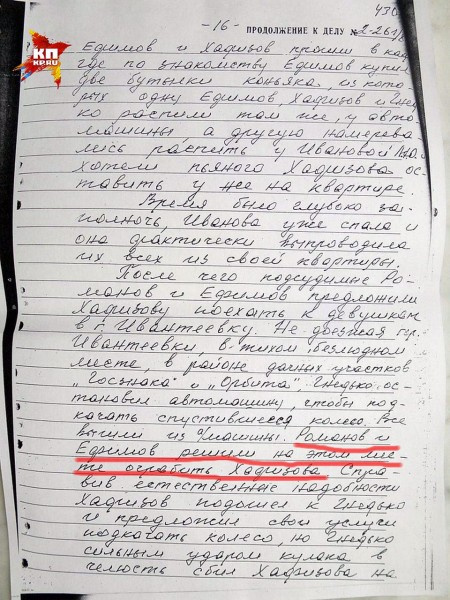 430
- 16 -
ПРОДОЛЖЕНИЕ К ДЕЛУ № 2-261/
КП
KP.RU
Ефимов и Хафизов прошли в каф
где по знакомству Ефимов купил
две бутылки коньяка, из кото-
рых одну Ефимов, Хафизов и Гнедь
ко распили там же, у авто
машины, а другую намерева
лись распить у Ивановой
хотели пьяного Хафизова ос-
тавить у нее на квартире.
Время было глубоко за
полночь, Иванова уже спала и
она фактически выпроводила
их всех из своей квартиры.
После чего подсудимые Ро-
манов и Ефимов предложили
Хафизову поехать к девушкам
в г. Ивантеевку. Не доезжая гор.
Ивантеевки, в тихом безлюдном
месте, в районе дачных участков
„Госзнака" и „Орбита" Гнедько ос-
тановил автомашину, чтобы под-
качать спустившееся колесо. Все
вышли из а/машины. Романов и
Ефимов решили на этом мес-
те ограбить Хафизова. Спра
вив естественные надобности
Хафизов подошел к Гнедько
и предложил свои услуги
подкачать колесо, но Гнедько
сильным ударом кулака в
челюсть сбил Хафизова на